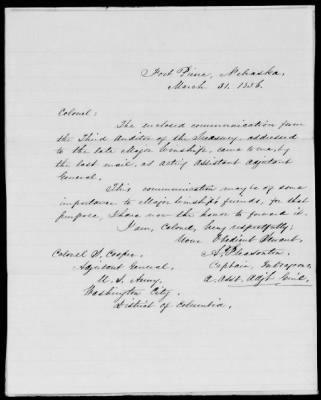 Fort Pierre, Nebraska,
March 31. 1856.
Colonel:
The enclosed communication from
the Third Auditor of the Treasury, addressed
to the late Major Winship, came to me, by
the last mail, as acting assistant adjutant
General.
This communication may be of some
importance to Major Winship's friends, for that
purpose, I have now the honor to forward it.
I am, Colonel, very respectfully,
Your Obedient Servant.
A. Pleasonton
Captain, 2d Dragoons,
a. asst. Adjt. Genl.
Colonel S. Cooper.
Adjutant General.
U. S. Army.
Washington City.
District of Columbia.